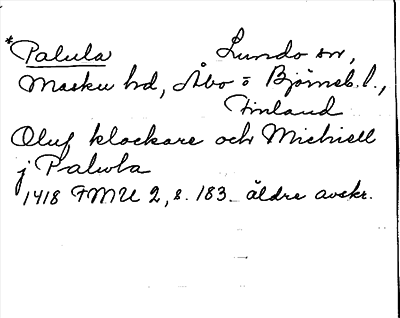 *Palula Lundo sn,
Masku hd, Åbo o Björneb. l.,
Finland
Oluf klockare och Michiell
j Palwla
1418 FMU 2, s. 183 äldre avskr.